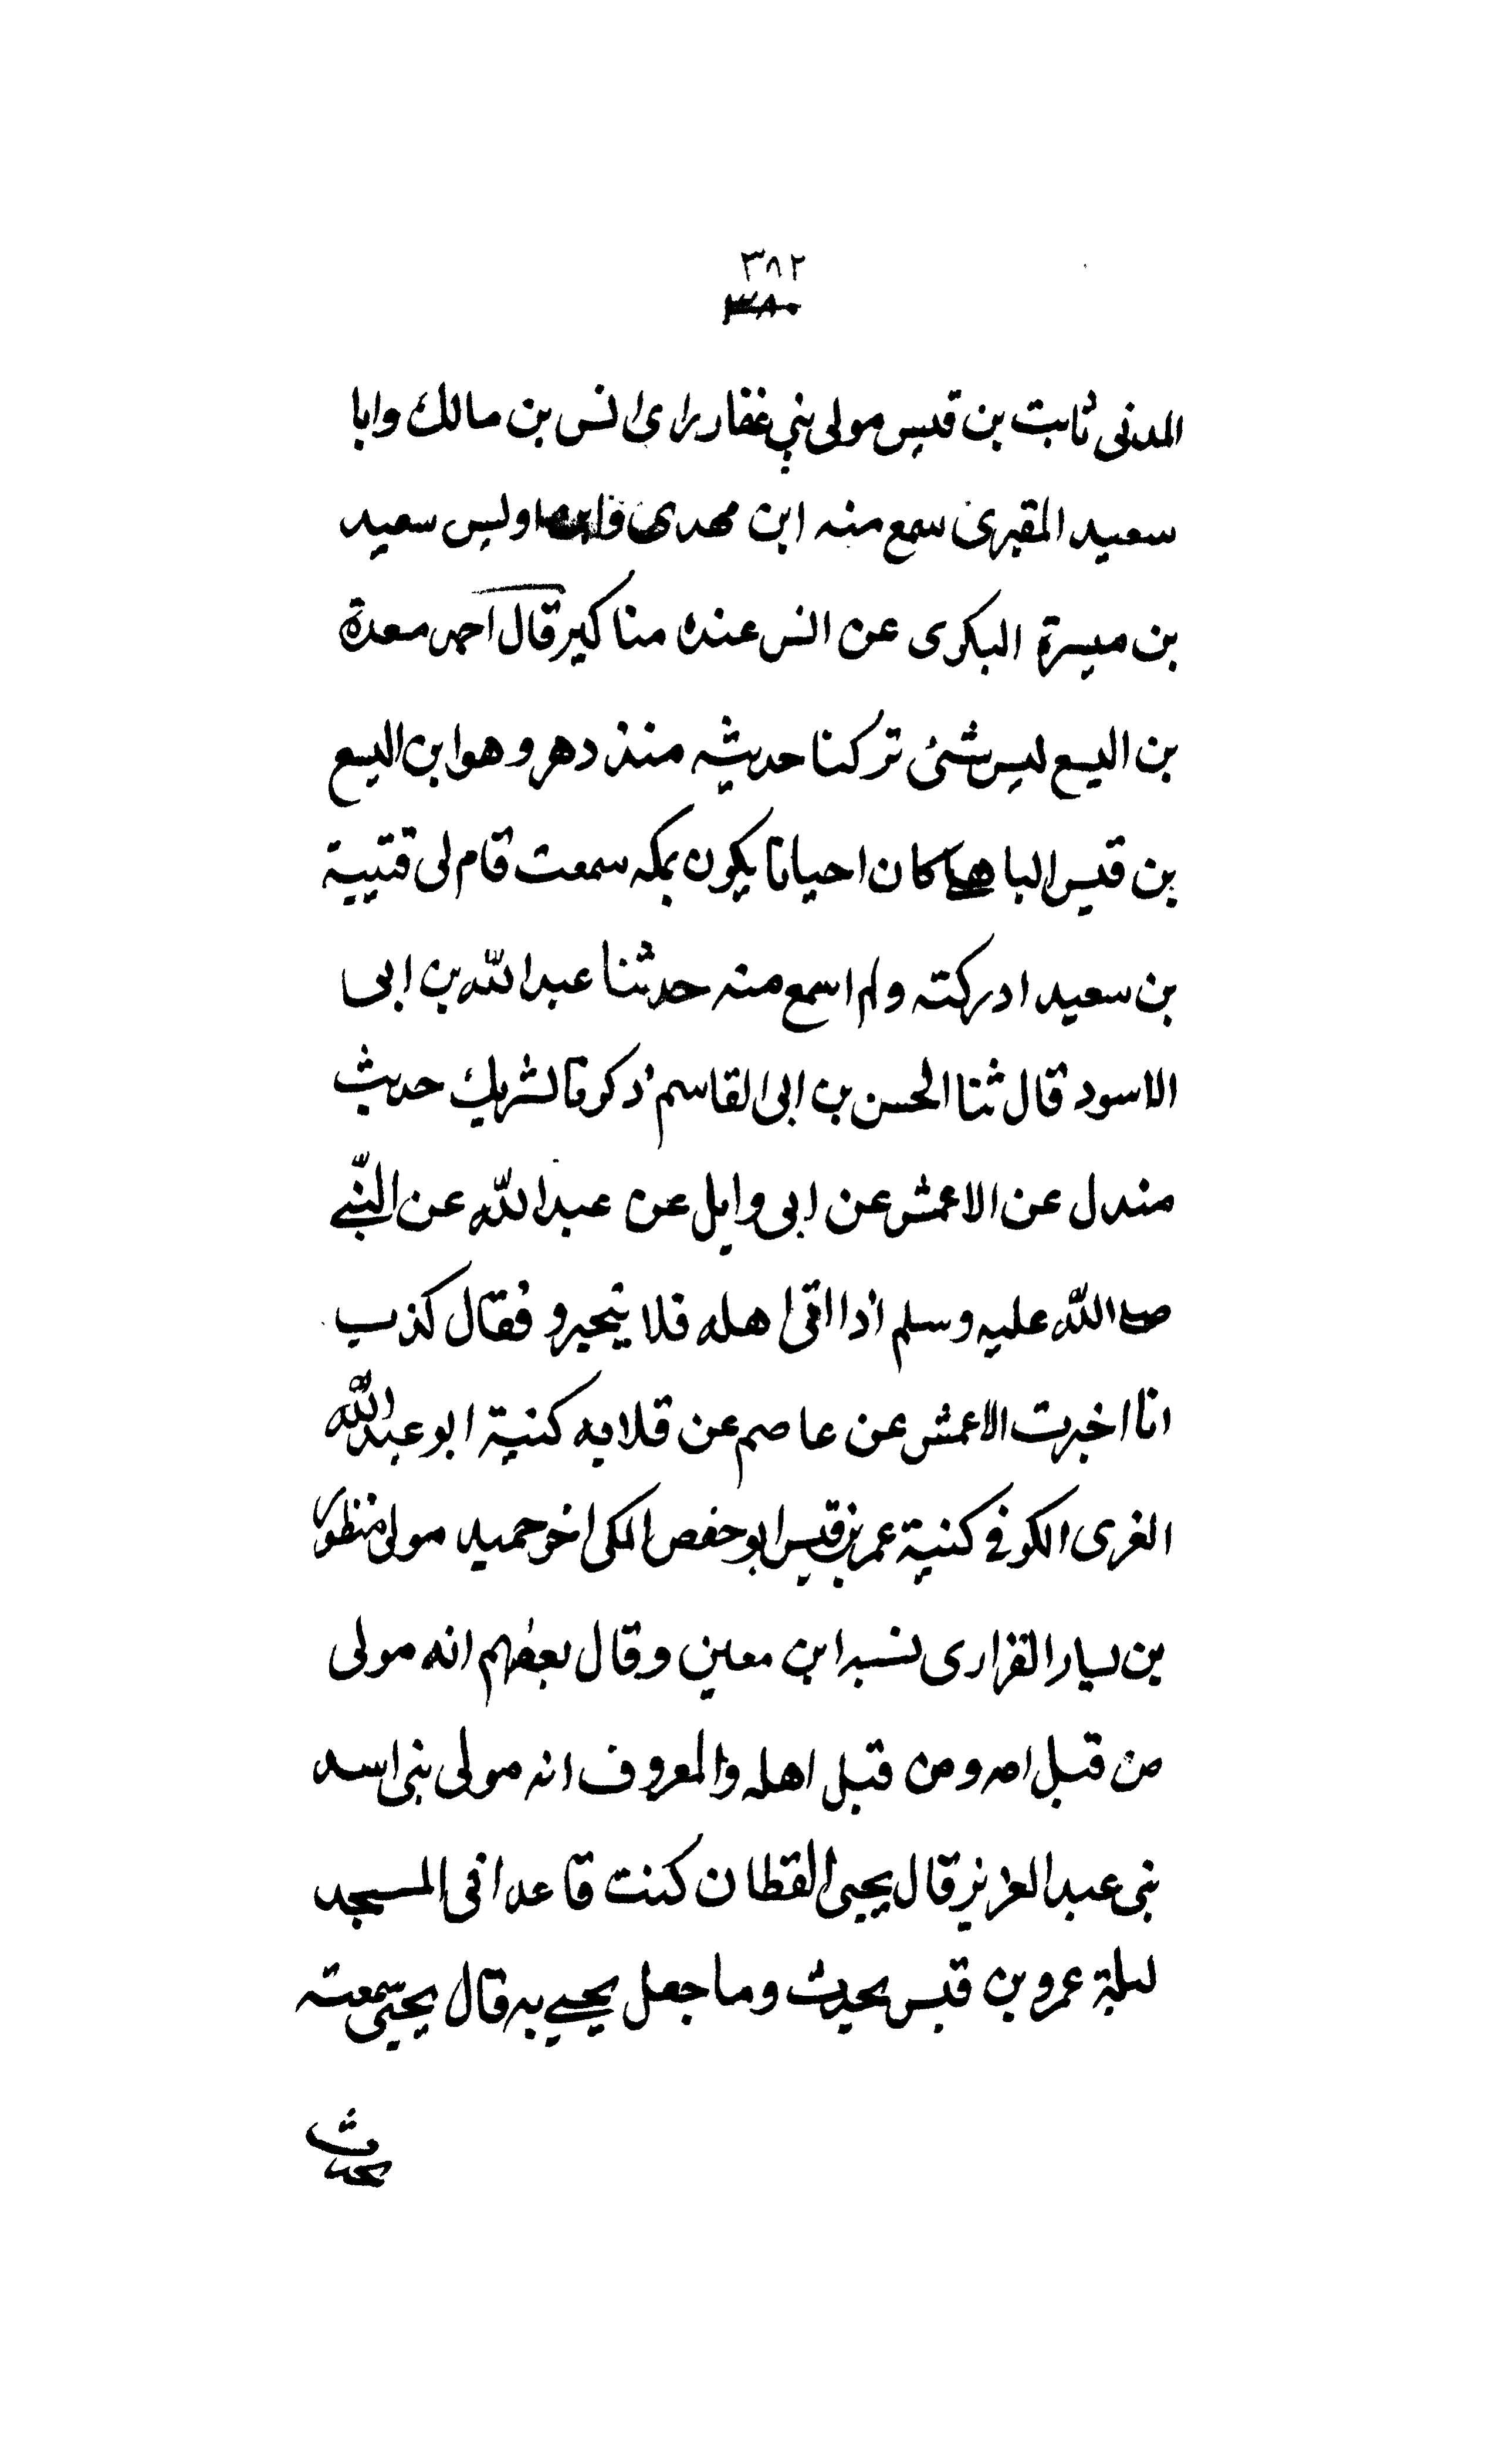 ٣٨٢
٣٨٠
المدنى ثابت بن قيس مولى بني غفار راى انس بن مالك وابا
سعيد المقبرى سمع منه ابن مهدى اوليس سعيد
بن ميسرة البكرى عن انس عنده مناكير قال احمد معدة
بن اليسع ليس شئ تركنا حديثه منذ دهر وهو ابن اليسع
بن قيس كان احيانا يكون بمكه سمعت قام لى قتيبة
بن سعيد ادركته ولم اسمع منه حدثنا عبد الله بن ابى
الاسود قال ثنا الحسن بن ابى القاسم ذكرنا لشريك حديث
مندل عن الاعمش عن ابى وايل عن عبد الله عن النبي
صلى الله عليه وسلم اذا اتى اهله فلا يتجرو فقال كذب
انا اخبرت الاعمش عن عاصم عن قلابه كنية ابو عبد الله
الغزى الكوفي كنية عمر بن قيس ابو حفص المكى اخو حميد مولى منظور
بن سيار الفزارى نسبه ابن معين وقال بعضهم انه مولى
من قبل امه ومن قبل اهله والمعروف انه مولى بنى اسد
بنى عبد العزيز قال يحيى القطان كنت قاعدا فى المسجد
ليلة عمرو بن قيس يحدث وما جعل يحيي به قال يحيى سمعته
يحدث